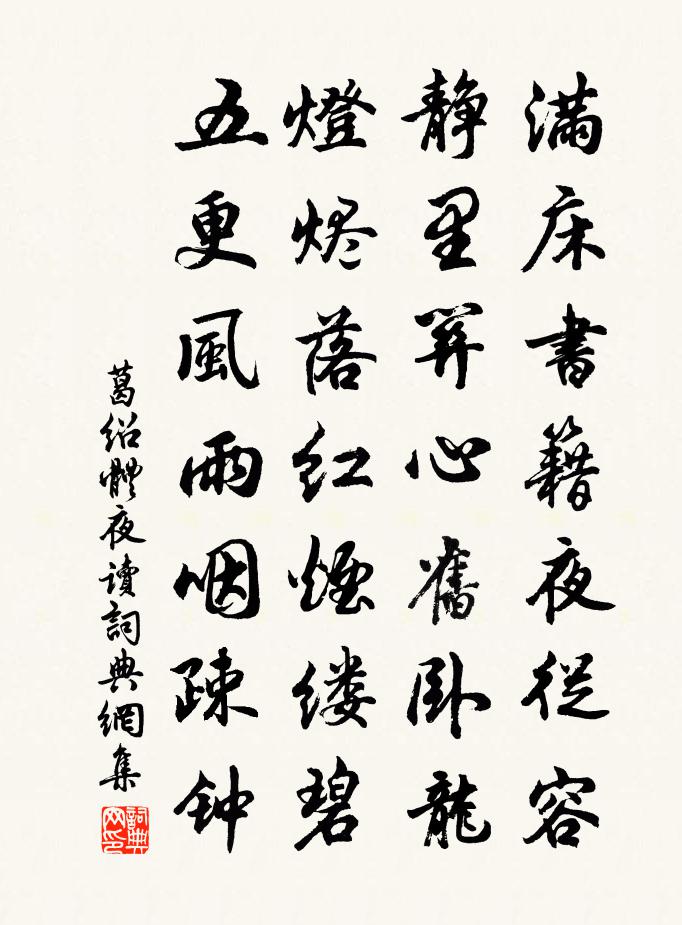 滿床書籍夜從容
静里心舊卧龍
燈烬落红煙缕碧
五更風雨咽疎钟
葛绍體夜讀詞典網集
詞典
网印